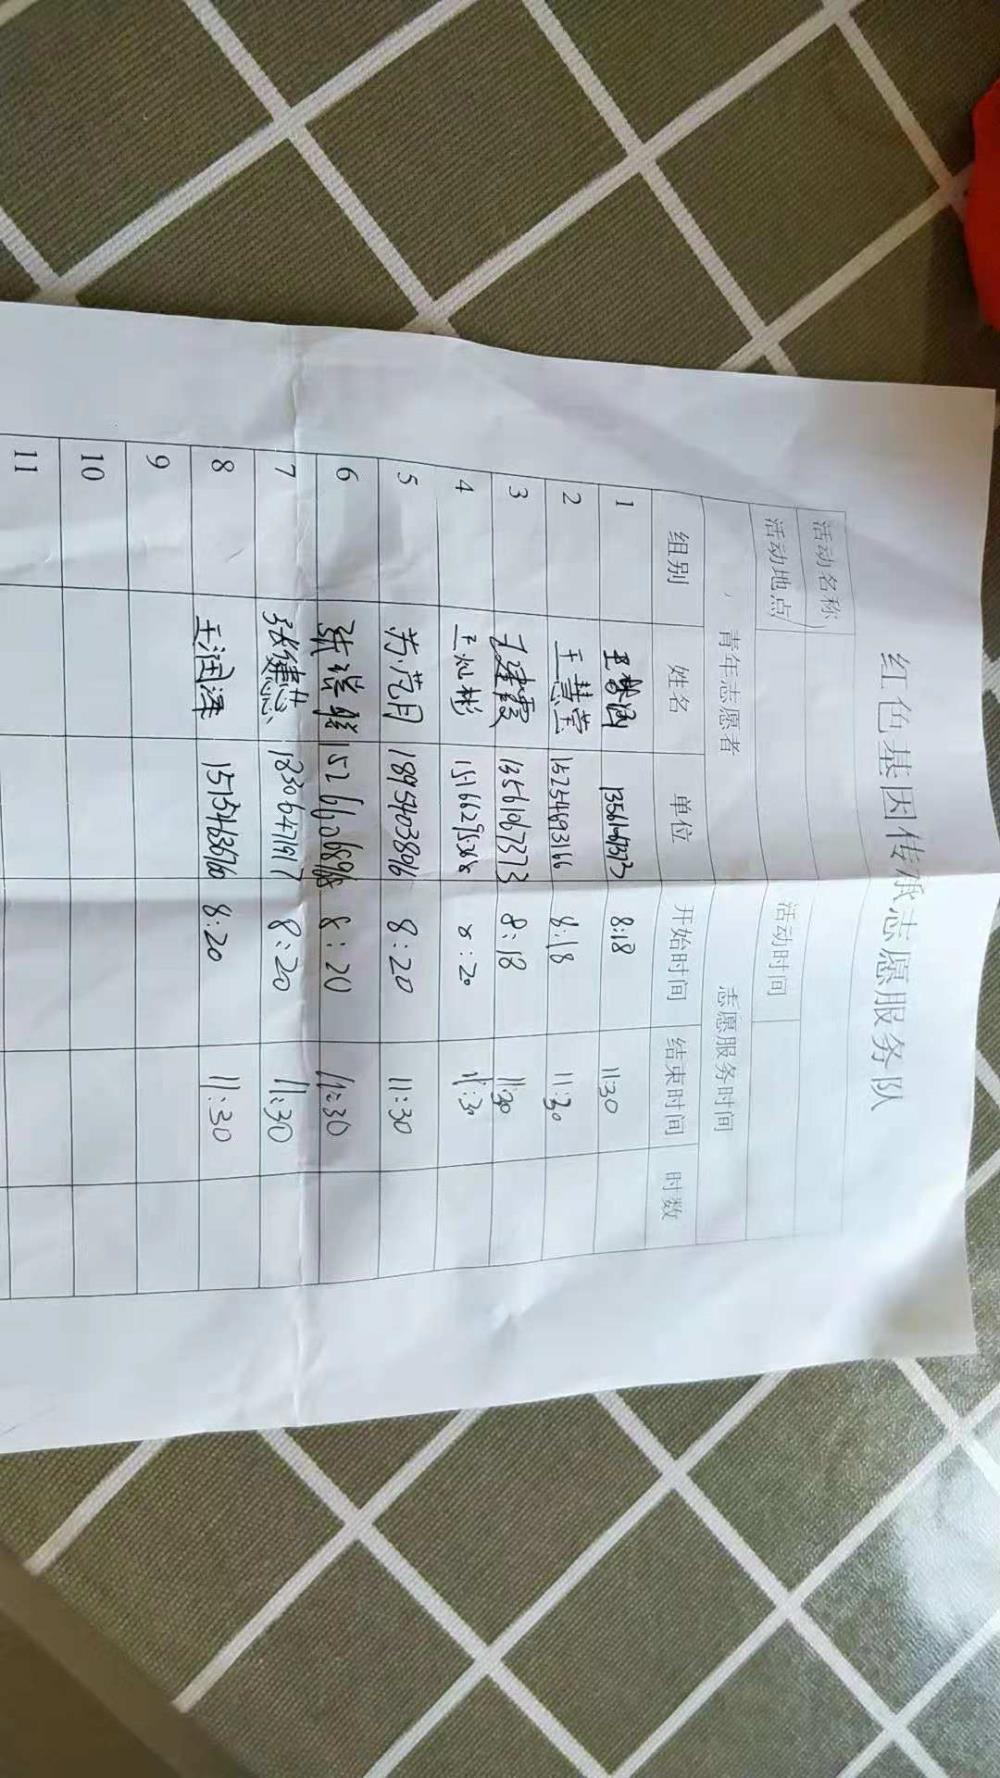 红色基因传承志愿服务队
活动名称
活动地点 活动时间
青年志愿者 志愿服务时间
组别 姓名 单位 开始时间 结束时间 时数
1 8:18 11:30
2 王慧莹 15254693166 8:18 11:30
3 王建霞 13561067373 8:18 11:30
4 王灿彬 8:20 11:30
5 18954038096 8:20 11:30
6 8:20 11:30
7 18306471917 8:20 11:30
8 王润泽 8:20 11:30
9
10
11